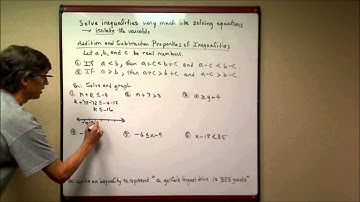 Solve inequalities very much like solving equations
→ isolate the variable
Addition and Subtraction Properties of Inequalities
Let a, b, and c be real numbers.
① If a < b, then a+c < b+c and a-c < b-c
② If a > b, then a+c > b+c and a-c > b-c
Ex: Solve and graph.
① ≤ -4 ② n+7 > 3 ③ x ≥ y+4
≤ -4-12
k ≤ -16
⑤ -6 ≤ x-9 ⑥ x-18 < 35
write an inequality to represent "a golfer's longest drive is 325 yards".